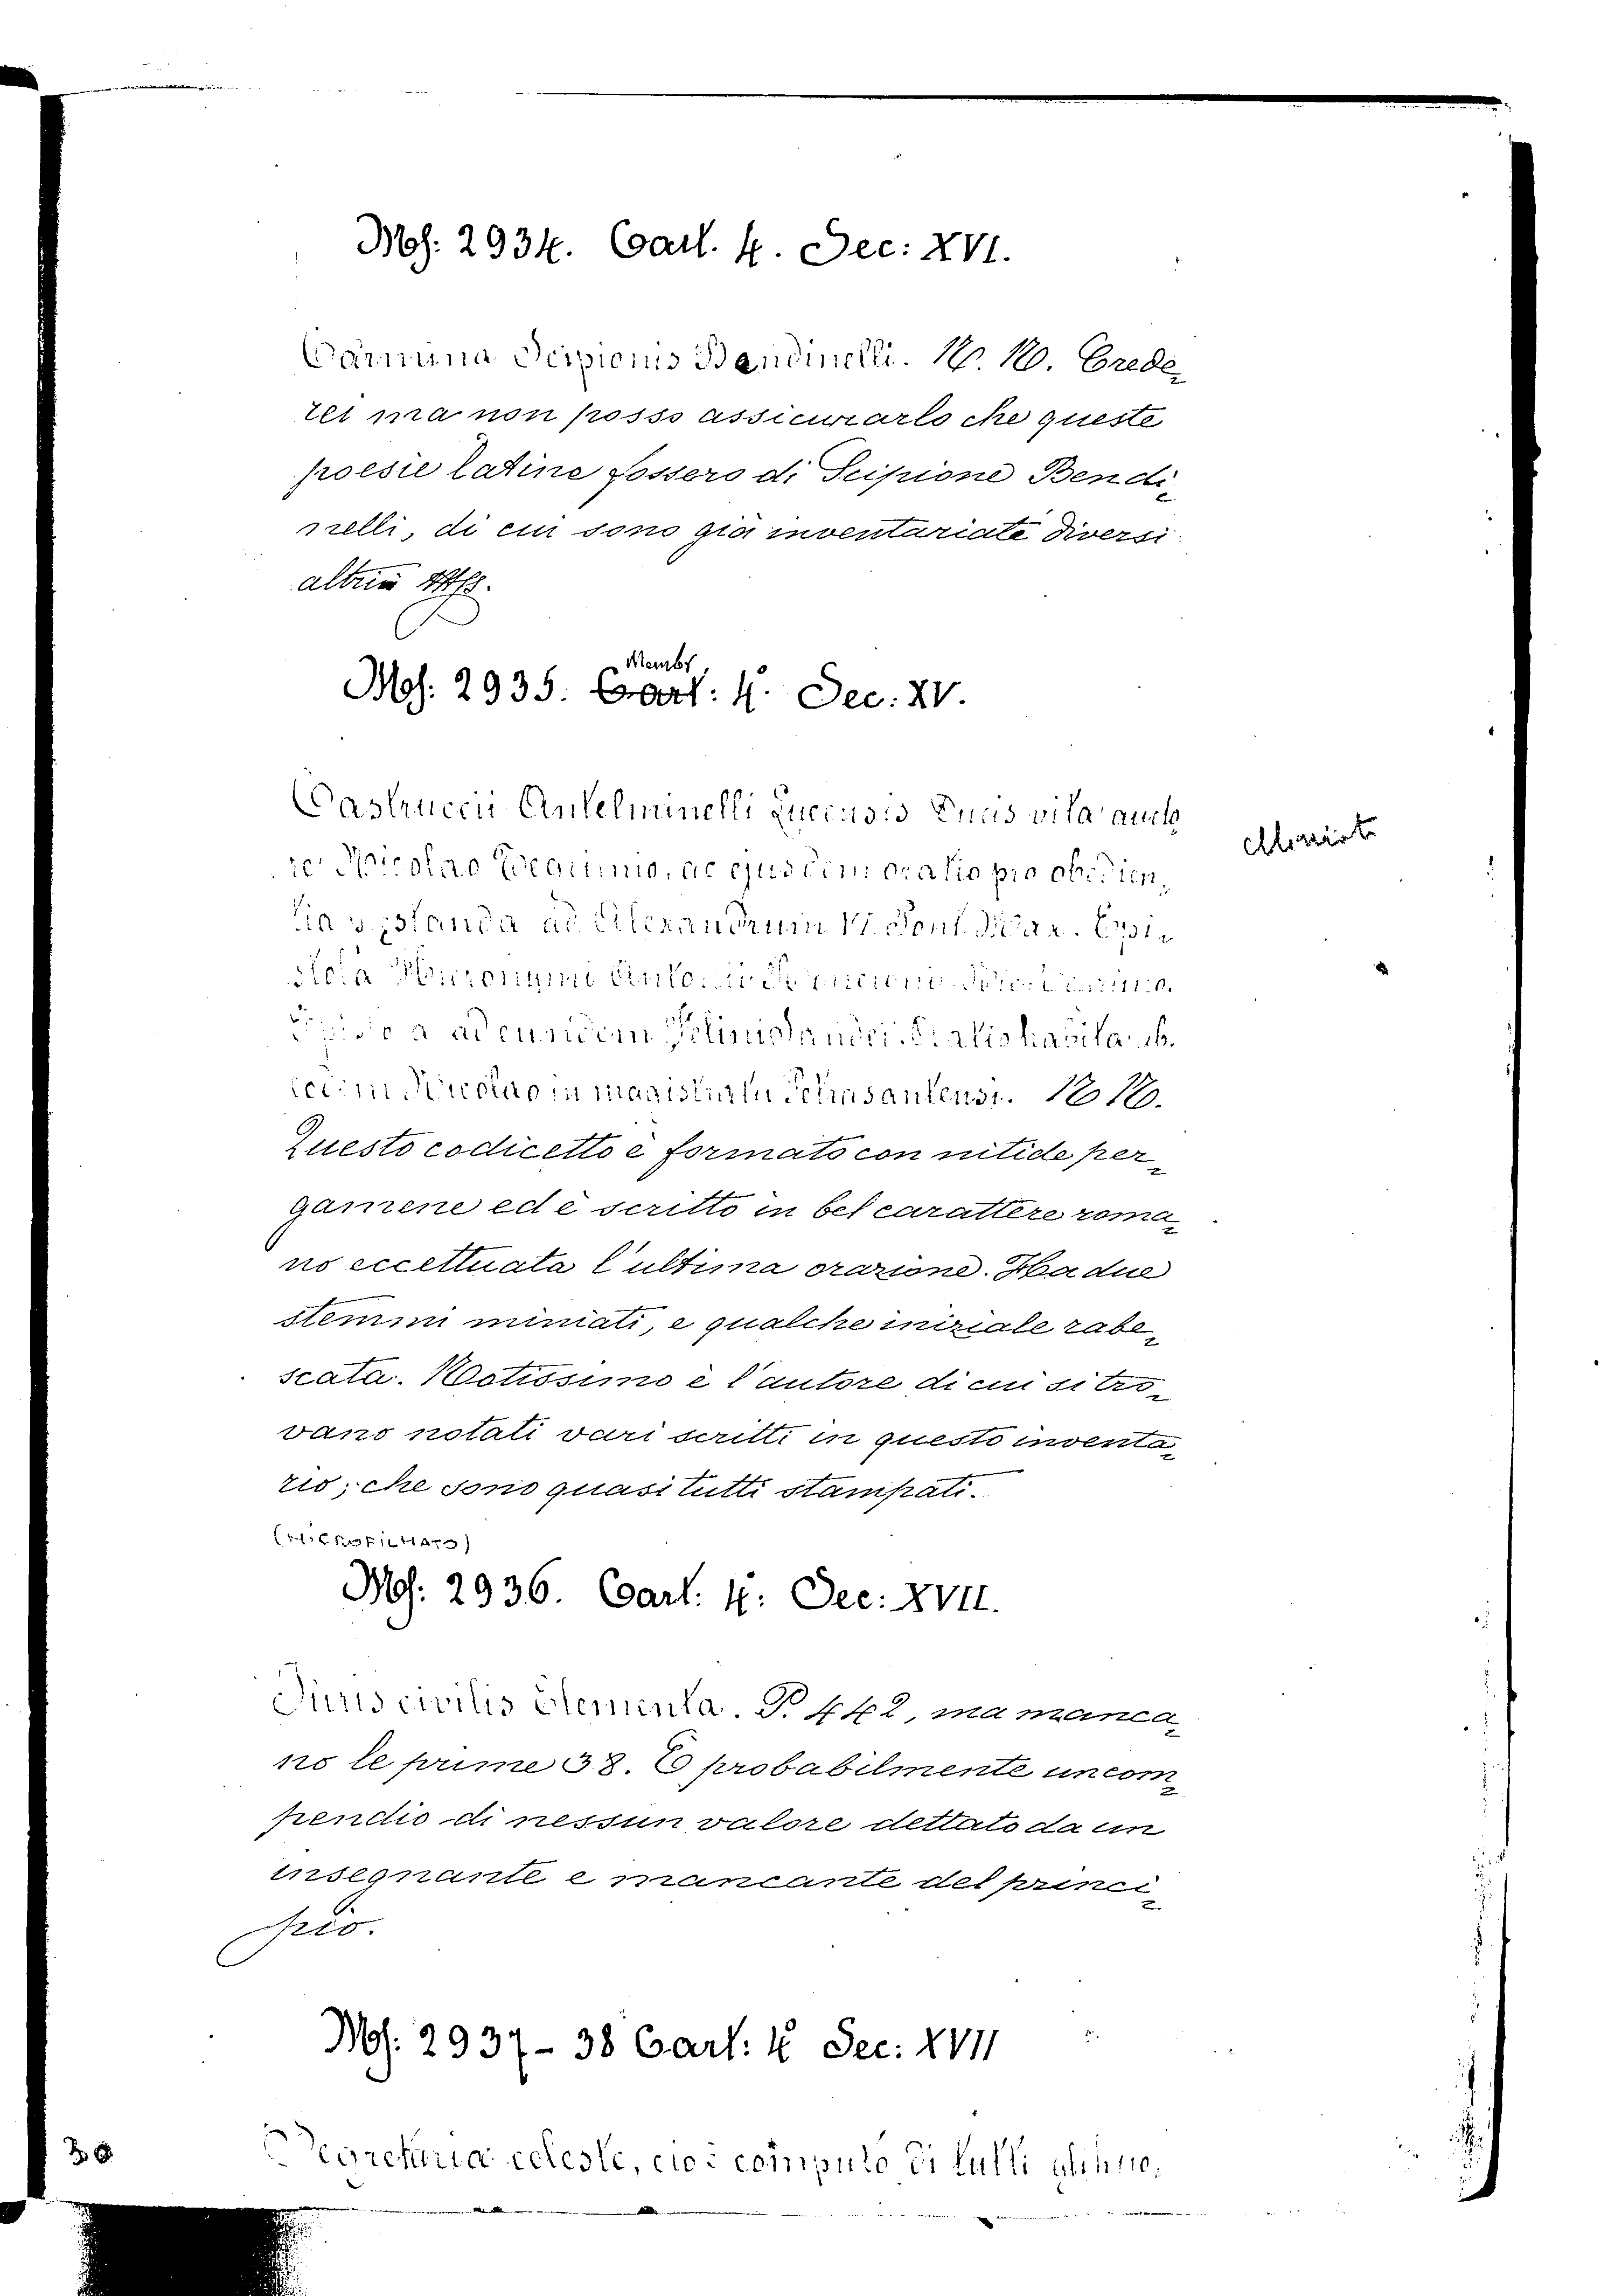 Ms. 2934. Cart. 4. Sec: XVI.
Carmina Scipionis Bandinelli. N. N. Crede-
rei ma non posso assicurarlo che queste
poesie latine fossero di Scipione Bendi-
nelli, di cui sono già inventariate diversi
altri Mss.
Membr
Ms: 2935. Cart: 4. Sec: XV.
Castruccii Antelminelli Lucensis Ducis vita aucto
re Nicolao Tegrimio, ac ejusdem oratio pro obedien-
tia prestanda ad Alexandrum VI. Pont. Max. Epi-
stola Hieronymi
Epistola ad eundem Felini Sandei. Oratio habita ab
eodem Nicolao in magistratu Petrasantensi. N N.
Questo codicetto è formato con nitide per-
gamene ed è scritto in bel carattere roma-
no eccettuata l'ultima orazione. Ha due
stemmi miniati, e qualche iniziale rabe-
scata. Notissimo è l'autore di cui si tro-
vano notati vari scritti in questo inventa-
rio; che sono quasi tutti stampati.
(MICROFILMATO)
Ms: 2936. Cart: 4: Sec: XVII.
Juris civilis Elementa. P. 442, ma manca-
no le prime 38. È probabilmente un com-
pendio di nessun valore dettato da un
insegnante e mancante del princi-
pio.
Ms: 2937-38 Cart: 4 Sec: XVII
Segretaria celeste, cioè computo di tutti gli